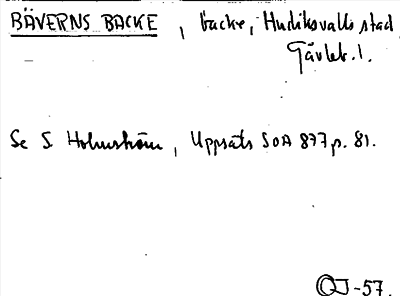 BÄVERNS BACKE, backe, Hudiksvalls stad
Gävleb. l.
Se S Holmström, Uppsats SOA 877 p. 81.
OJ-57.